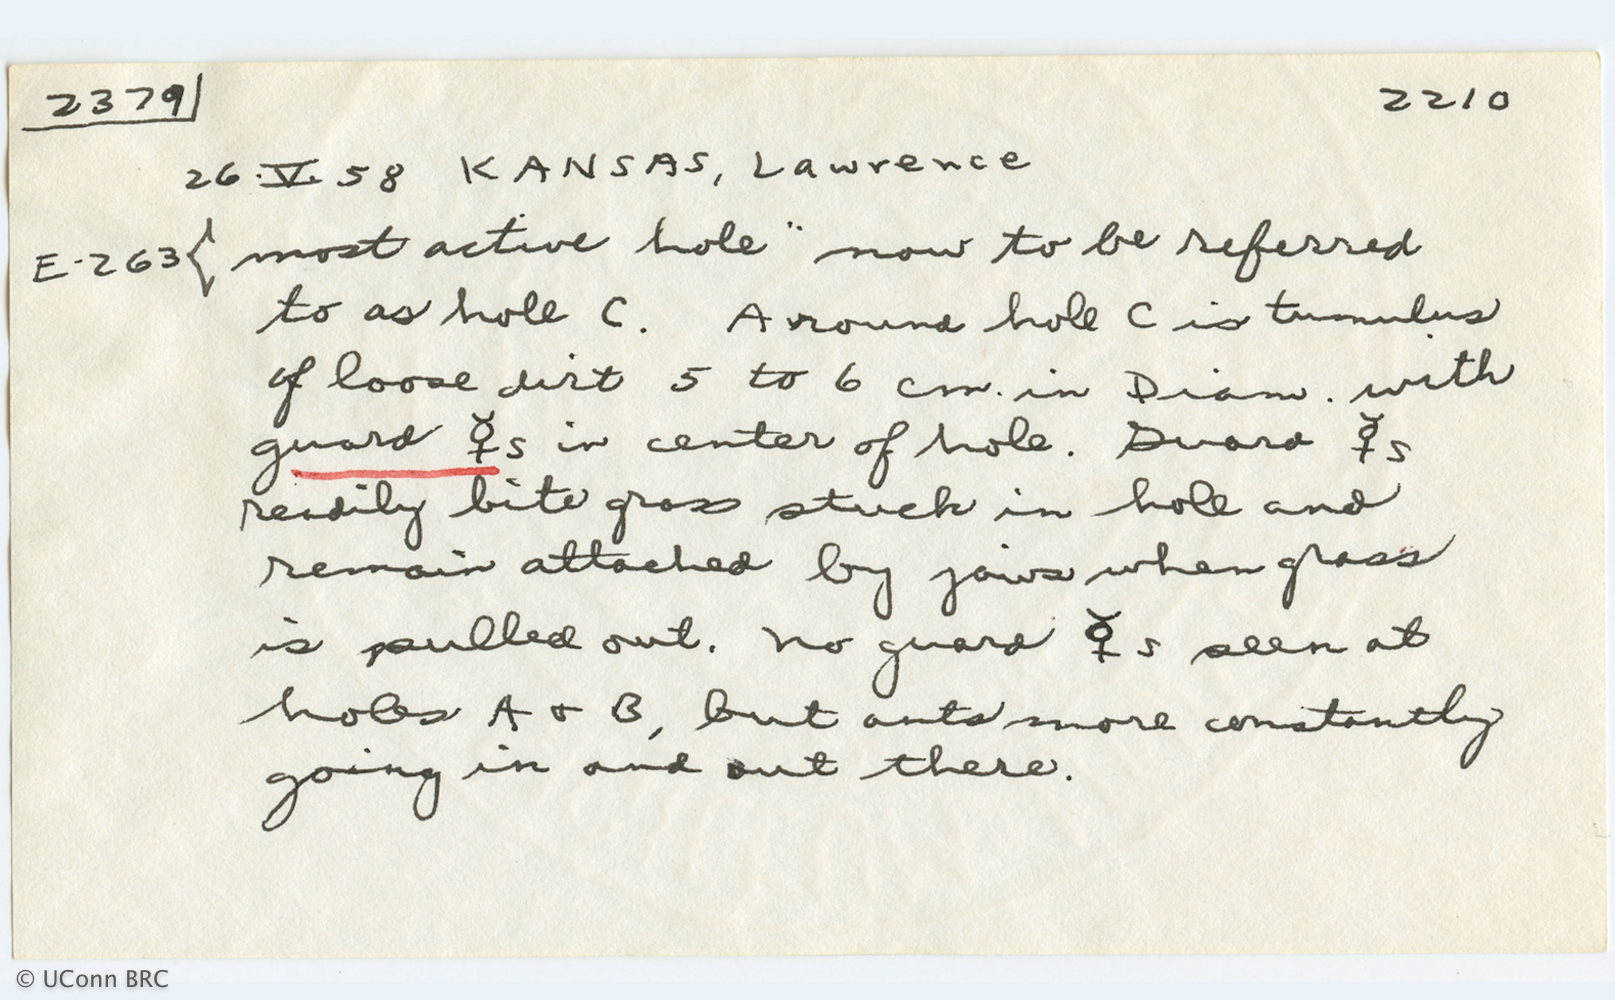 2379
2210
26.V.58 KANSAS, Lawrence
E-263 { most active hole" now to be referred
to as hole C. Around hole C is tumulus
of loose dirt 5 to 6 cm. in Diam. with
guard ☿s in center of hole. Guard ☿s
readily bite grass stuck in hole and
remain attached by jaws when grass
is pulled out. No guard ☿s seen at
holes A & B, but ants more constantly
going in and out there.
© UConn BRC